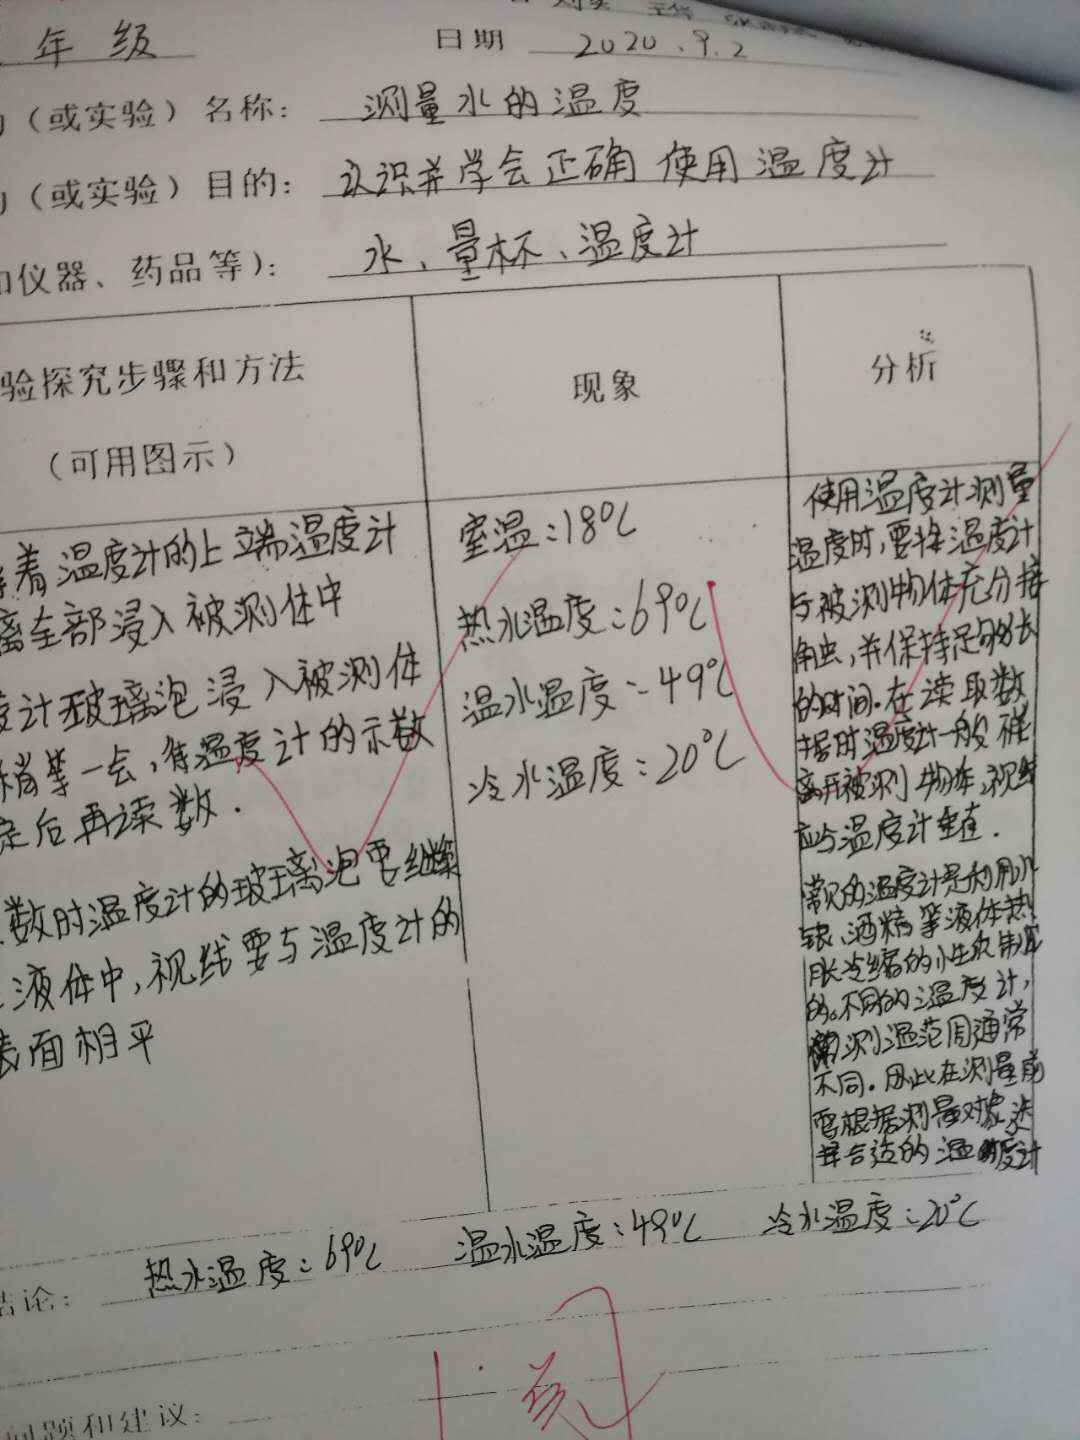 年级 日期 2020.9.2
（或实验）名称： 测量水的温度
（或实验）目的： 认识并学会正确使用温度计
仪器、药品等）： 水、量杯、温度计
验探究步骤和方法
（可用图示）
现象
分析
着温度计的上端温度计
全部浸入被测体中
计玻璃泡浸入被测体
稍等一会，待温度计的示数
定后再读数．
数时温度计的玻璃泡要继续
液体中，视线要与温度计的
表面相平
室温：18℃
热水温度：69℃
温水温度：49℃
冷水温度：20℃
使用温度计测量
温度时，要将温度计
与被测物体充分接
触，并保持足够长
的时间．在读取数
据时温度计一般
离开被测物体，视线
应与温度计垂直．
常见的温度计是利用水
银、酒精等液体热
胀冷缩的性质制
的。不同的温度计，
测温范周通常
不同．因此在测量前
要根据测量对象选
择合适的温度计
结论： 热水温度：69℃ 温水温度：49℃ 冷水温度：20℃
问题和建议：
阅